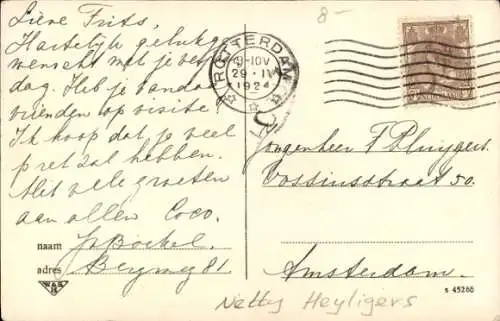 Lieve Frits,
Hartelijk geluk
wenscht met je ver
dag. Heb je vandaag
vrienden op visite?
Ik hoop dat je veel
pret zal hebben.
Met vele groeten
aan allen Coco.
naam J. Bockel.
adres Bergweg 81.
W&B
H
8-
ROTTERDAM
29·IV
1924
Jongenheer F Pluygers.
Vossiusstraat 50.
Amsterdam.
s 45266
Netty Heyligers